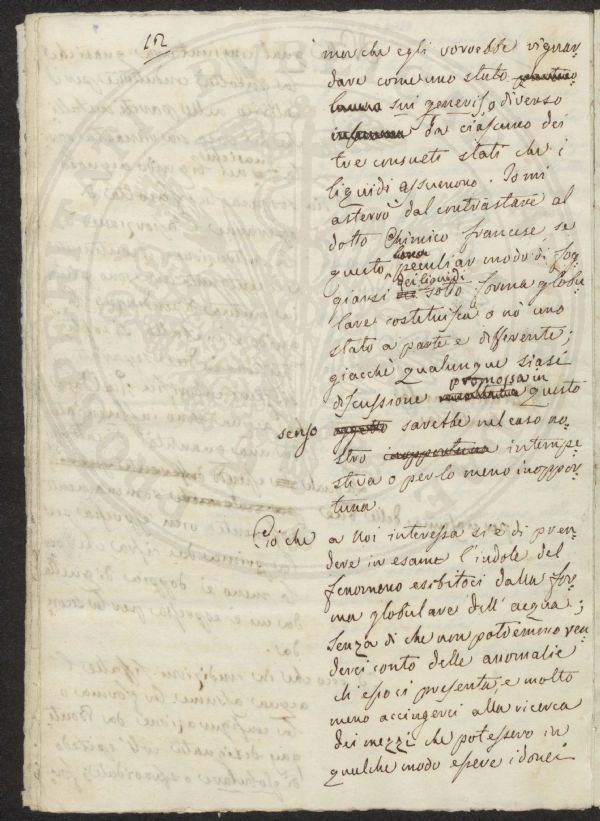 152
mon che egli vorrebbe riguar-
dare come uno stato
sui generis, o diverso
da ciascuno dei
tre consueti stati che i
liquidi assumono. Io mi
asterrò dal contrastare al
dotto Chimico francese, se
questo loro peculiar modo di fog-
giarsi dei liquidi sotto forma globu-
lare costituisca o nò uno
stato a parte e differente;
giacchè qualunque siasi
discussione promossa in questo
senso oggetto sarebbe nel caso no-
stro inopportuna intempe-
stiva o per lo meno inoppor-
tuna.
Ciò che a noi interessa si è di pren-
dere in esame l'indole del
fenomeno esibitoci dalla for-
ma globulare dell'acqua;
senza di che non potremmo ren-
derci conto delle anomalie
ch'esso ci presenta, e molto
meno accingerci alla ricerca
dei mezzi che potessero in
qualche modo essere idonei